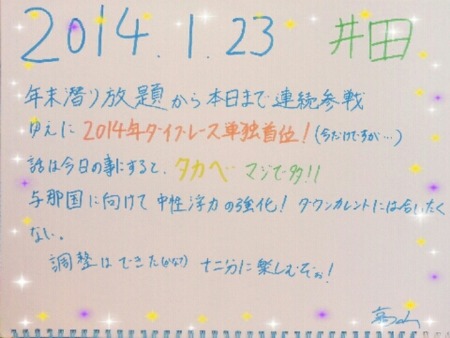 2014.1.23 井田
年末潜り放題から本日まで連続参戦
ゆえに 2014年ダイブレース単独首位！(今だけですが…)
話は今日の事にすると、タカベ マジで多!!
与那国に向けて中性浮力の強化！ダウンカレントには合いたく
ない。
調整はできた(かな?) 十二分に楽しむぞぉ！
高山